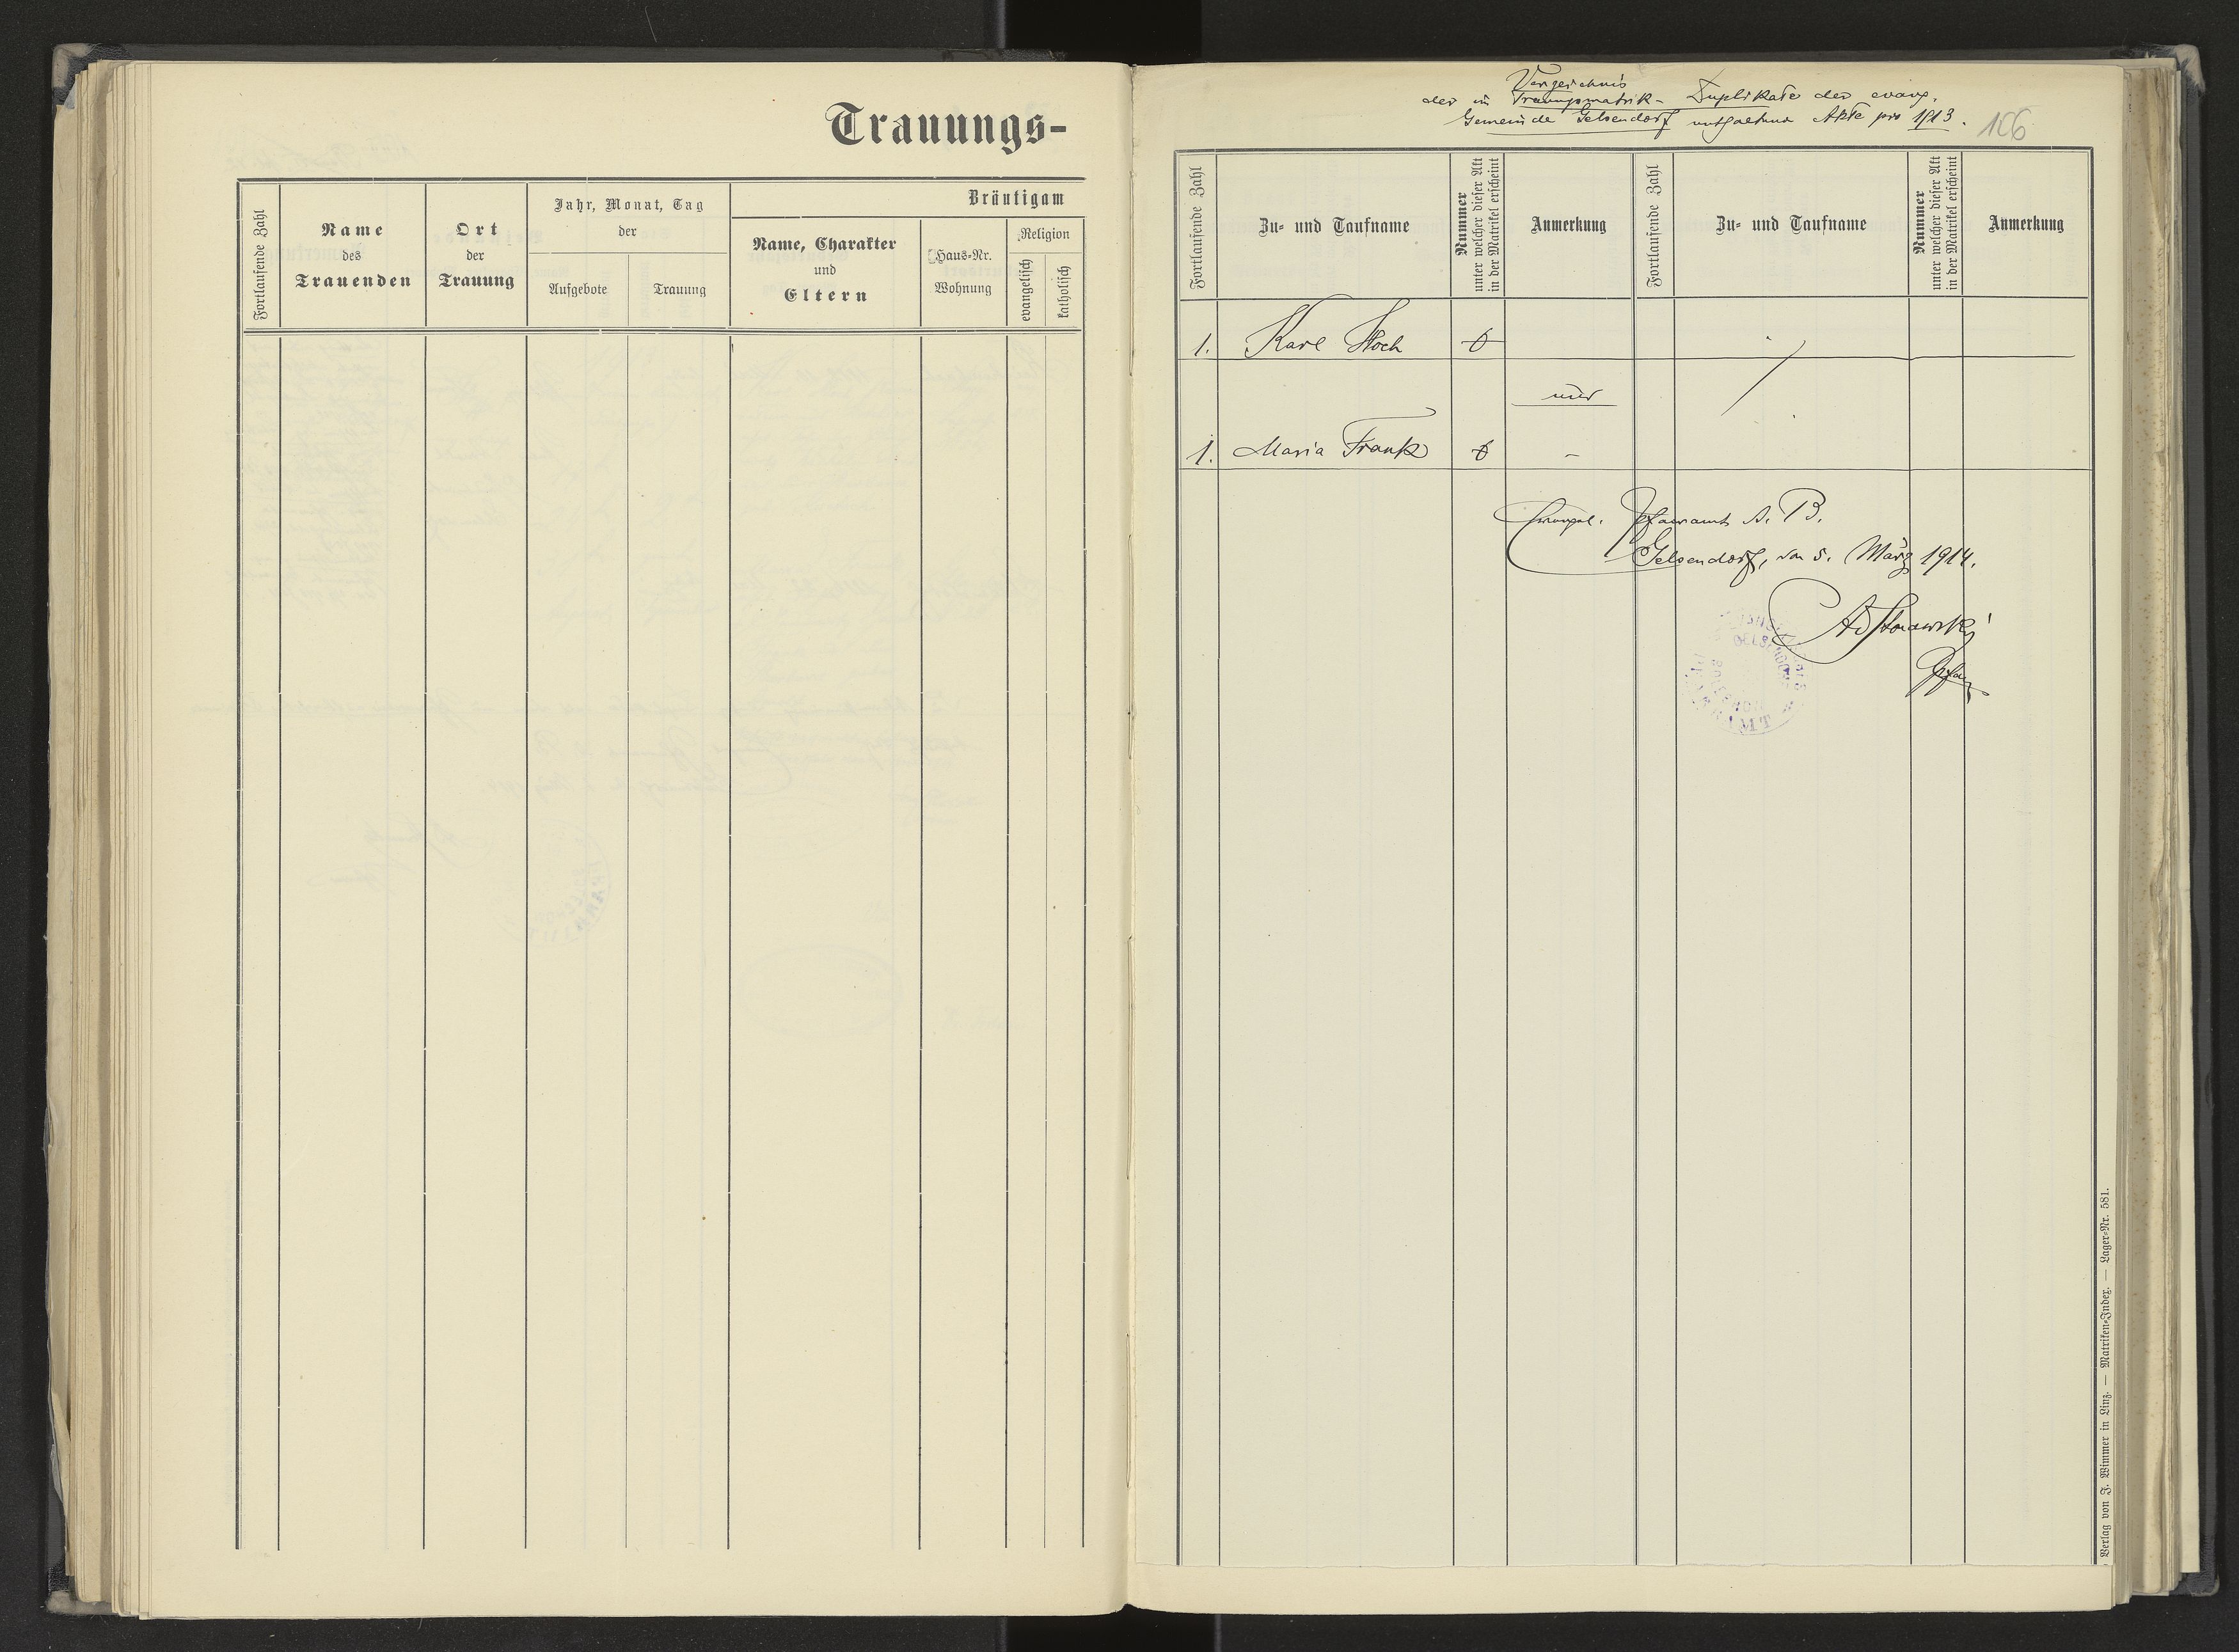 Trauungs-
Fortlaufende Zahl
Name
des
Trauenden
Ort
der
Trauung
Jahr, Monat, Tag
der
Aufgebote
Trauung
Bräutigam
Name, Charakter
und
Eltern
Haus-Nr.
Wohnung
Religion
evangelisch
katholisch
Verzeichnis
der in Trauungsmatrik- Duplikate der evang.
Gemeinde Gelsendorf enthaltene Akte pro 1913.
106
Fortlaufende Zahl
Zu- und Taufname
Nummer
unter welcher dieser Akt
in der Matrikel erscheint
Anmerkung
Fortlaufende Zahl
Zu- und Taufname
Nummer
unter welcher dieser Akt
in der Matrikel erscheint
Anmerkung
1. Karl
und
1. Maria Frank -
Evangel. Pfarramt A. B.
Gelsendorf, den 5. März 1914.
GELSENDORF
Pfarrer
Verlag von J. Wimmer in Linz. — Matriken-Index. — Lager-Nr. 581.